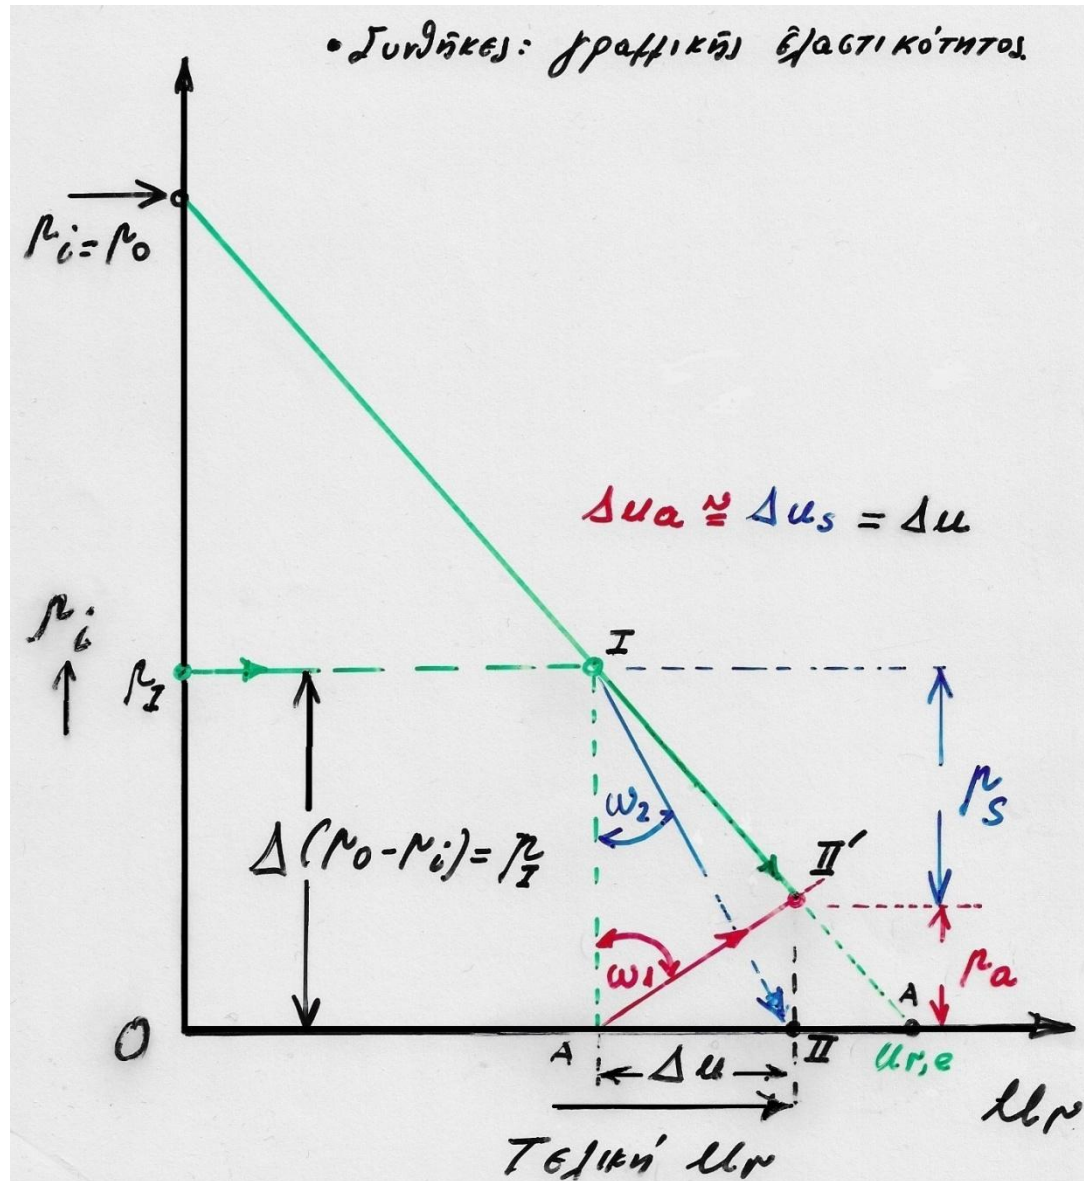 • Συνθῆκες: γραμμικῆς ἐλαστικότητος
pi=po
Δua ≅ Δus = Δu
pi
I
pI
ω2
ps
Δ(po-pi)=pI
II'
ω1
pa
A
O
A
Δu
II
ur,e
ur
Τελική ur